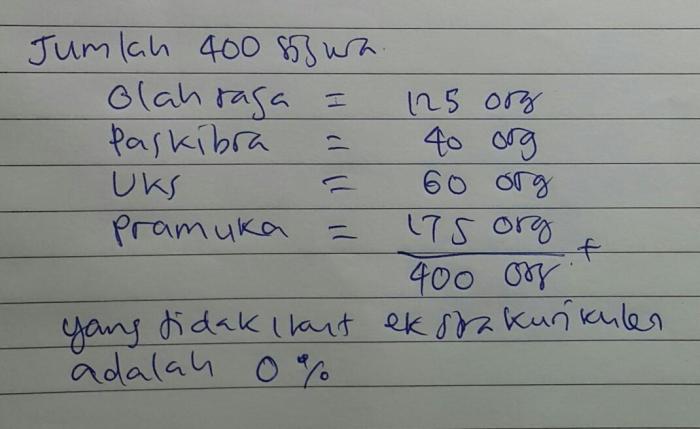 Jumlah 400 siswa
Olah raga = 125 org
Paskibra = 40 org
UKS = 60 org
Pramuka = 175 org +
400 org
yang tidak ikut ekstrakurikuler
adalah 0 %